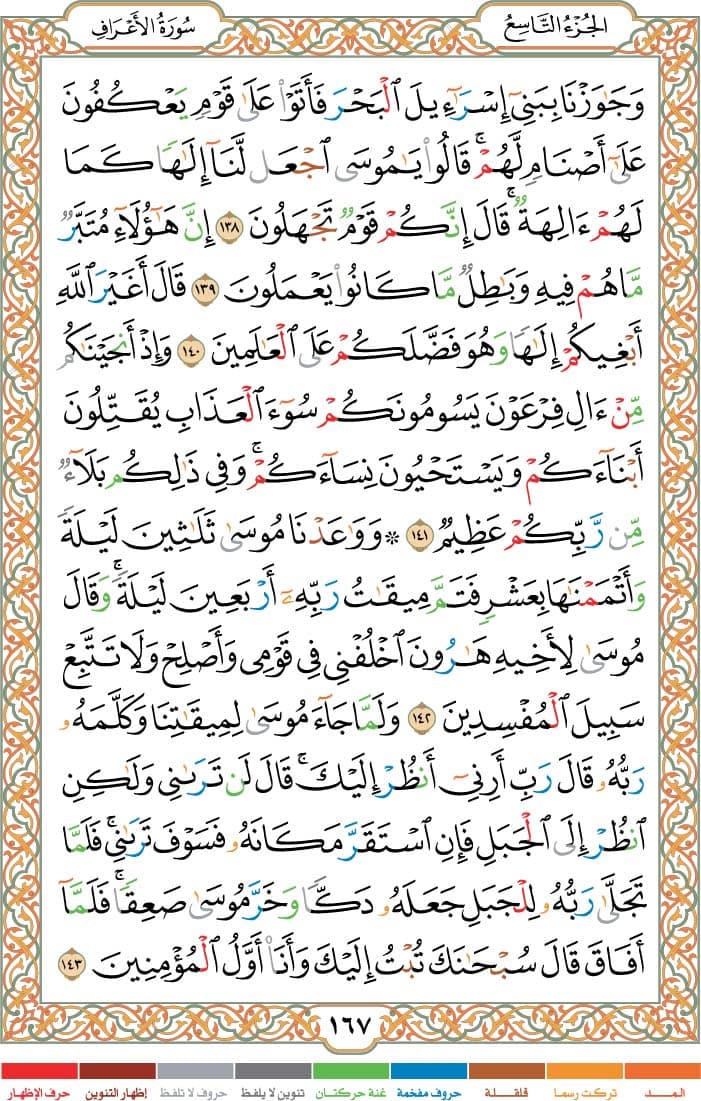 الجُزْءُ التَّاسِعُ
سُورَةُ الأَعْرَافِ
وَجَٰوَزْنَا بِبَنِىٓ إِسْرَٰٓءِيلَ ٱلْبَحْرَ فَأَتَوْا۟ عَلَىٰ قَوْمٍ يَعْكُفُونَ
عَلَىٰٓ أَصْنَامٍ لَّهُمْ ۚ قَالُوا۟ يَٰمُوسَى ٱجْعَل لَّنَآ إِلَٰهًا كَمَا
لَهُمْ ءَالِهَةٌ ۚ قَالَ إِنَّكُمْ قَوْمٌ تَجْهَلُونَ ١٣٨ إِنَّ هَٰٓؤُلَآءِ مُتَبَّرٌ
مَّا هُمْ فِيهِ وَبَٰطِلٌ مَّا كَانُوا۟ يَعْمَلُونَ ١٣٩ قَالَ أَغَيْرَ ٱللَّهِ
أَبْغِيكُمْ إِلَٰهًا وَهُوَ فَضَّلَكُمْ عَلَى ٱلْعَٰلَمِينَ ١٤٠ وَإِذْ أَنجَيْنَٰكُم
مِّنْ ءَالِ فِرْعَوْنَ يَسُومُونَكُمْ سُوٓءَ ٱلْعَذَابِ يُقَتِّلُونَ
أَبْنَآءَكُمْ وَيَسْتَحْيُونَ نِسَآءَكُمْ ۚ وَفِى ذَٰلِكُم بَلَآءٌ
مِّن رَّبِّكُمْ عَظِيمٌ ١٤١ ۞ وَوَٰعَدْنَا مُوسَىٰ ثَلَٰثِينَ لَيْلَةً
وَأَتْمَمْنَٰهَا بِعَشْرٍ فَتَمَّ مِيقَٰتُ رَبِّهِۦٓ أَرْبَعِينَ لَيْلَةً ۚ وَقَالَ
مُوسَىٰ لِأَخِيهِ هَٰرُونَ ٱخْلُفْنِى فِى قَوْمِى وَأَصْلِحْ وَلَا تَتَّبِعْ
سَبِيلَ ٱلْمُفْسِدِينَ ١٤٢ وَلَمَّا جَآءَ مُوسَىٰ لِمِيقَٰتِنَا وَكَلَّمَهُۥ
رَبُّهُۥ قَالَ رَبِّ أَرِنِىٓ أَنظُرْ إِلَيْكَ ۚ قَالَ لَن تَرَىٰنِى وَلَٰكِنِ
ٱنظُرْ إِلَى ٱلْجَبَلِ فَإِنِ ٱسْتَقَرَّ مَكَانَهُۥ فَسَوْفَ تَرَىٰنِى ۚ فَلَمَّا
تَجَلَّىٰ رَبُّهُۥ لِلْجَبَلِ جَعَلَهُۥ دَكًّا وَخَرَّ مُوسَىٰ صَعِقًا ۚ فَلَمَّآ
أَفَاقَ قَالَ سُبْحَٰنَكَ تُبْتُ إِلَيْكَ وَأَنَا۠ أَوَّلُ ٱلْمُؤْمِنِينَ ١٤٣
١٦٧
المــد تركت رسما قلقـلة حروف مفخمة غنة حركتان تنوين لا يلفظ حروف لا تلفظ إظهار التنوين حرف الإظهار